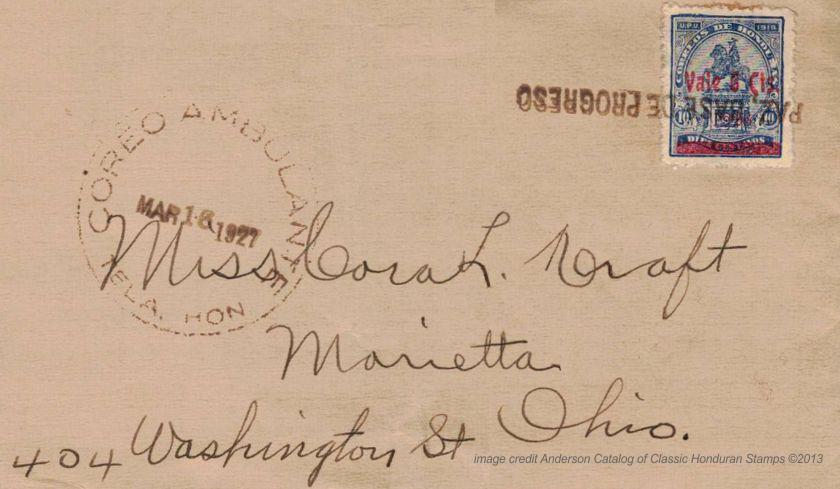 U.P.U. 1919
CORREOS DE HONDURAS
Vale 6 Cts.
10 10
PAZ BASE DE PROGRESO
COREO AMBULANTE
MAR 18 1927
TELA, HON
Miss Cora L. Kraft
Marietta
Ohio.
404 Washington St
image credit Anderson Catalog of Classic Honduran Stamps ©2013